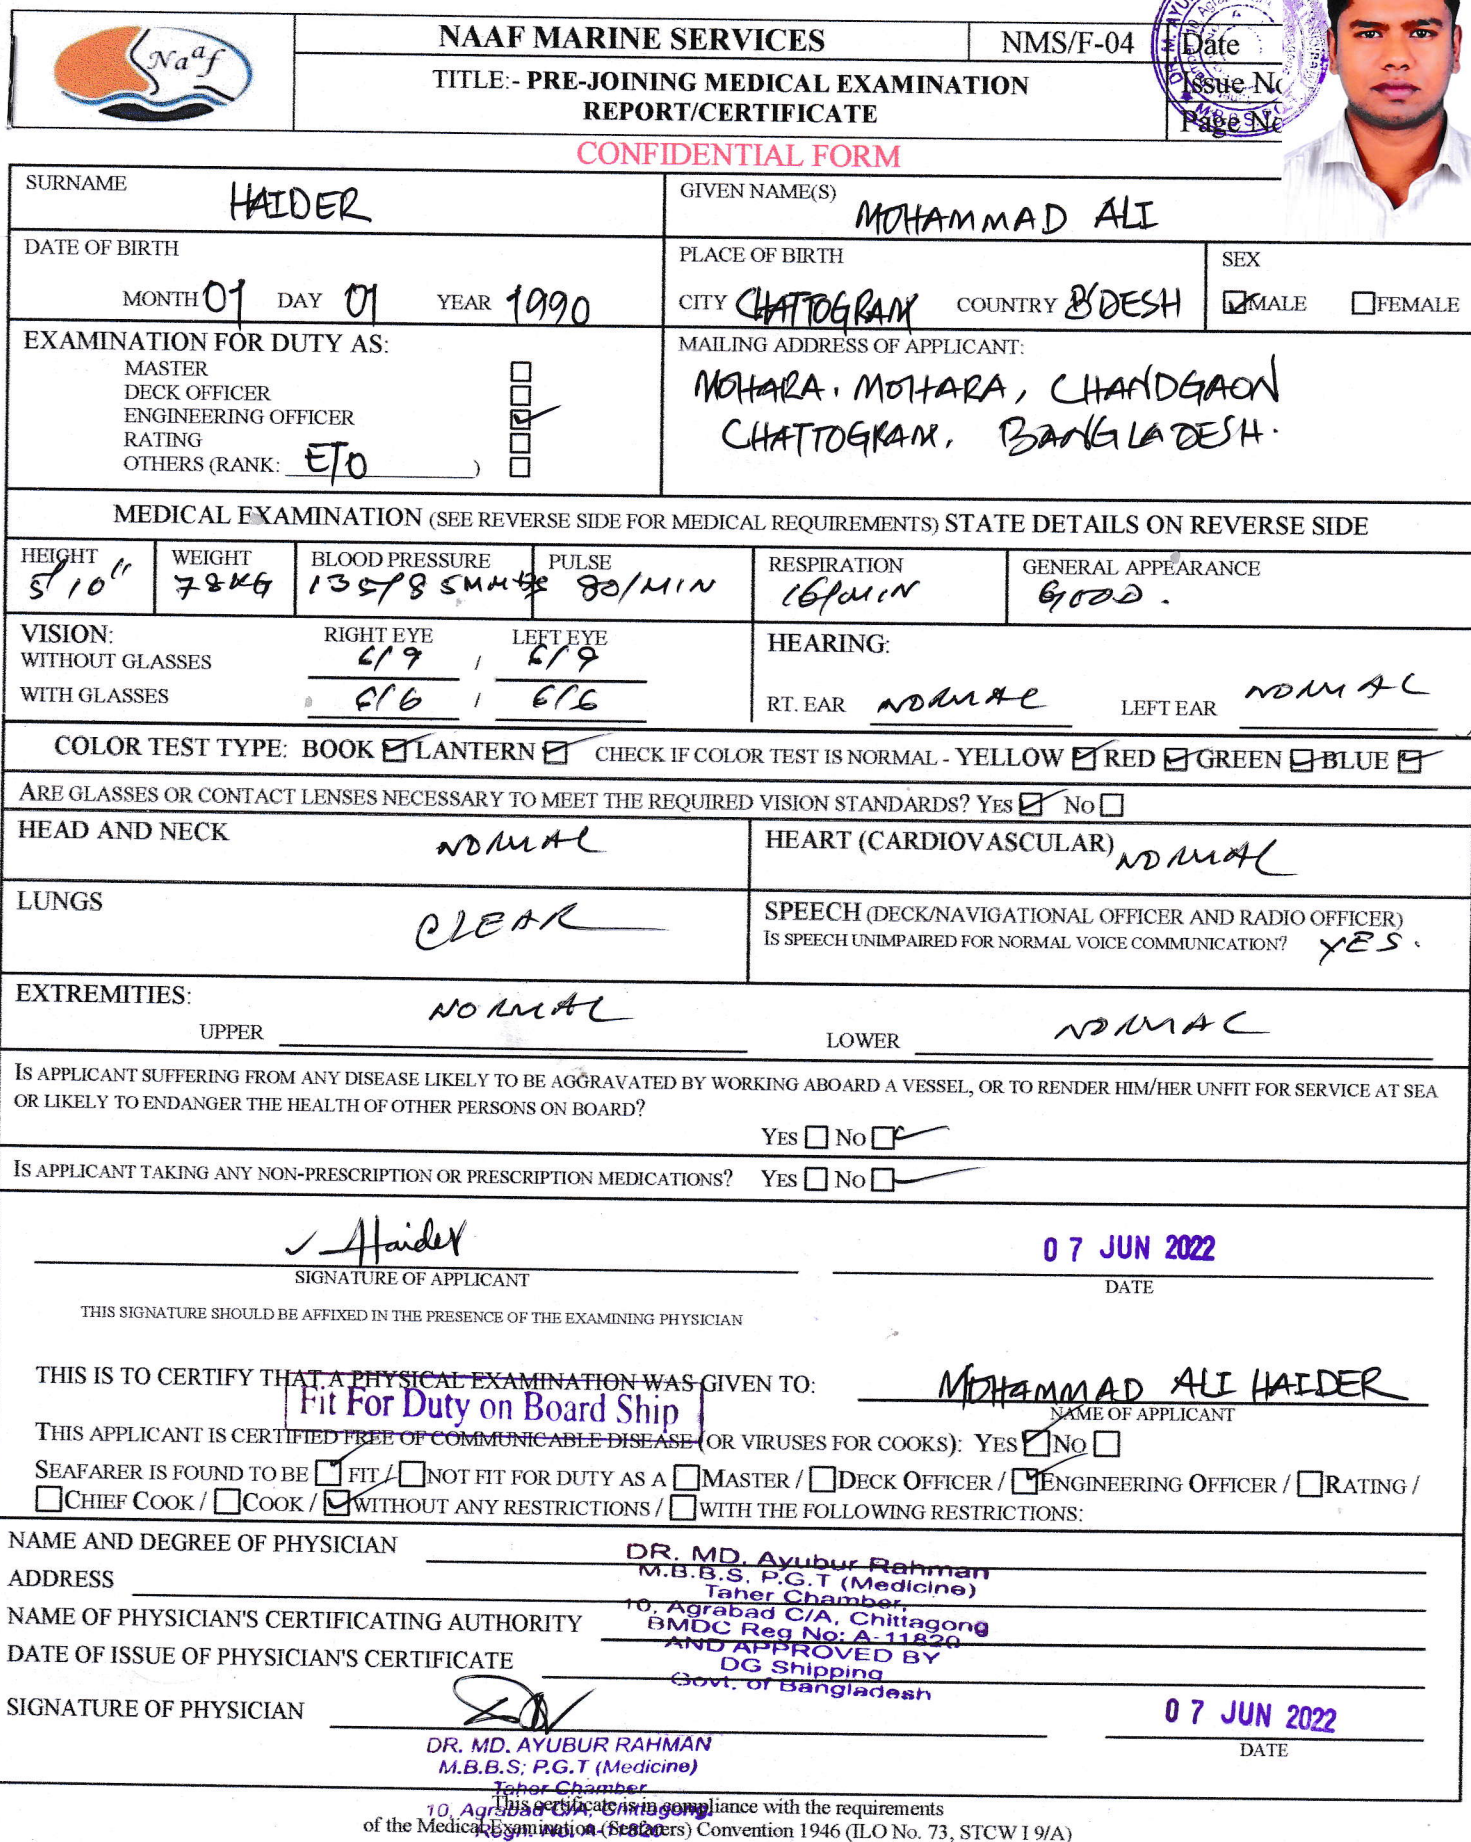 Naaf
NAAF MARINE SERVICES
NMS/F-04
Date
TITLE:- PRE-JOINING MEDICAL EXAMINATION
REPORT/CERTIFICATE
Issue No
Page No
CONFIDENTIAL FORM
SURNAME HAIDER
GIVEN NAME(S) MOHAMMAD ALI
DATE OF BIRTH
MONTH 01 DAY 01 YEAR 1990
PLACE OF BIRTH
CITY CHATTOGRAM COUNTRY B'DESH
SEX
MALE FEMALE
EXAMINATION FOR DUTY AS:
MASTER
DECK OFFICER
ENGINEERING OFFICER
RATING
OTHERS (RANK: ETO )
MAILING ADDRESS OF APPLICANT:
MOHARA, MOHARA, CHANDGAON
CHATTOGRAM, BANGLADESH.
MEDICAL EXAMINATION (SEE REVERSE SIDE FOR MEDICAL REQUIREMENTS) STATE DETAILS ON REVERSE SIDE
HEIGHT 5'10"
WEIGHT 78KG
BLOOD PRESSURE 135/85MMHg
PULSE 80/MIN
RESPIRATION 16/MIN
GENERAL APPEARANCE GOOD.
VISION: RIGHT EYE LEFT EYE
WITHOUT GLASSES 6/9 / 6/9
WITH GLASSES 6/6 / 6/6
HEARING:
RT. EAR NORMAL LEFT EAR NORMAL
COLOR TEST TYPE: BOOK LANTERN CHECK IF COLOR TEST IS NORMAL - YELLOW RED GREEN BLUE
ARE GLASSES OR CONTACT LENSES NECESSARY TO MEET THE REQUIRED VISION STANDARDS? YES NO
HEAD AND NECK NORMAL
HEART (CARDIOVASCULAR) NORMAL
LUNGS CLEAR
SPEECH (DECK/NAVIGATIONAL OFFICER AND RADIO OFFICER)
IS SPEECH UNIMPAIRED FOR NORMAL VOICE COMMUNICATION? YES.
EXTREMITIES:
UPPER NORMAL LOWER NORMAL
IS APPLICANT SUFFERING FROM ANY DISEASE LIKELY TO BE AGGRAVATED BY WORKING ABOARD A VESSEL, OR TO RENDER HIM/HER UNFIT FOR SERVICE AT SEA
OR LIKELY TO ENDANGER THE HEALTH OF OTHER PERSONS ON BOARD?
YES NO
IS APPLICANT TAKING ANY NON-PRESCRIPTION OR PRESCRIPTION MEDICATIONS? YES NO
Haider
07 JUN 2022
SIGNATURE OF APPLICANT
DATE
THIS SIGNATURE SHOULD BE AFFIXED IN THE PRESENCE OF THE EXAMINING PHYSICIAN
THIS IS TO CERTIFY THAT A PHYSICAL EXAMINATION WAS GIVEN TO: MOHAMMAD ALI HAIDER
Fit For Duty on Board Ship
NAME OF APPLICANT
THIS APPLICANT IS CERTIFIED FREE OF COMMUNICABLE DISEASE (OR VIRUSES FOR COOKS): YES NO
SEAFARER IS FOUND TO BE FIT / NOT FIT FOR DUTY AS A MASTER / DECK OFFICER / ENGINEERING OFFICER / RATING /
CHIEF COOK / COOK / WITHOUT ANY RESTRICTIONS / WITH THE FOLLOWING RESTRICTIONS:
NAME AND DEGREE OF PHYSICIAN
ADDRESS
NAME OF PHYSICIAN'S CERTIFICATING AUTHORITY
DATE OF ISSUE OF PHYSICIAN'S CERTIFICATE
DR. MD. Ayubur Rahman
M.B.B.S, P.G.T (Medicine)
Taher Chamber,
10, Agrabad C/A, Chittagong
BMDC Reg No: A-11820
AND APPROVED BY
DG Shipping
Govt. of Bangladesh
SIGNATURE OF PHYSICIAN
07 JUN 2022
DATE
DR. MD. AYUBUR RAHMAN
M.B.B.S; P.G.T (Medicine)
Taher Chamber
10, Agrabad C/A, Chittagong.
Regn. No. A-11820
This certificate is in compliance with the requirements
of the Medical Examination (Seafarers) Convention 1946 (ILO No. 73, STCW I 9/A)